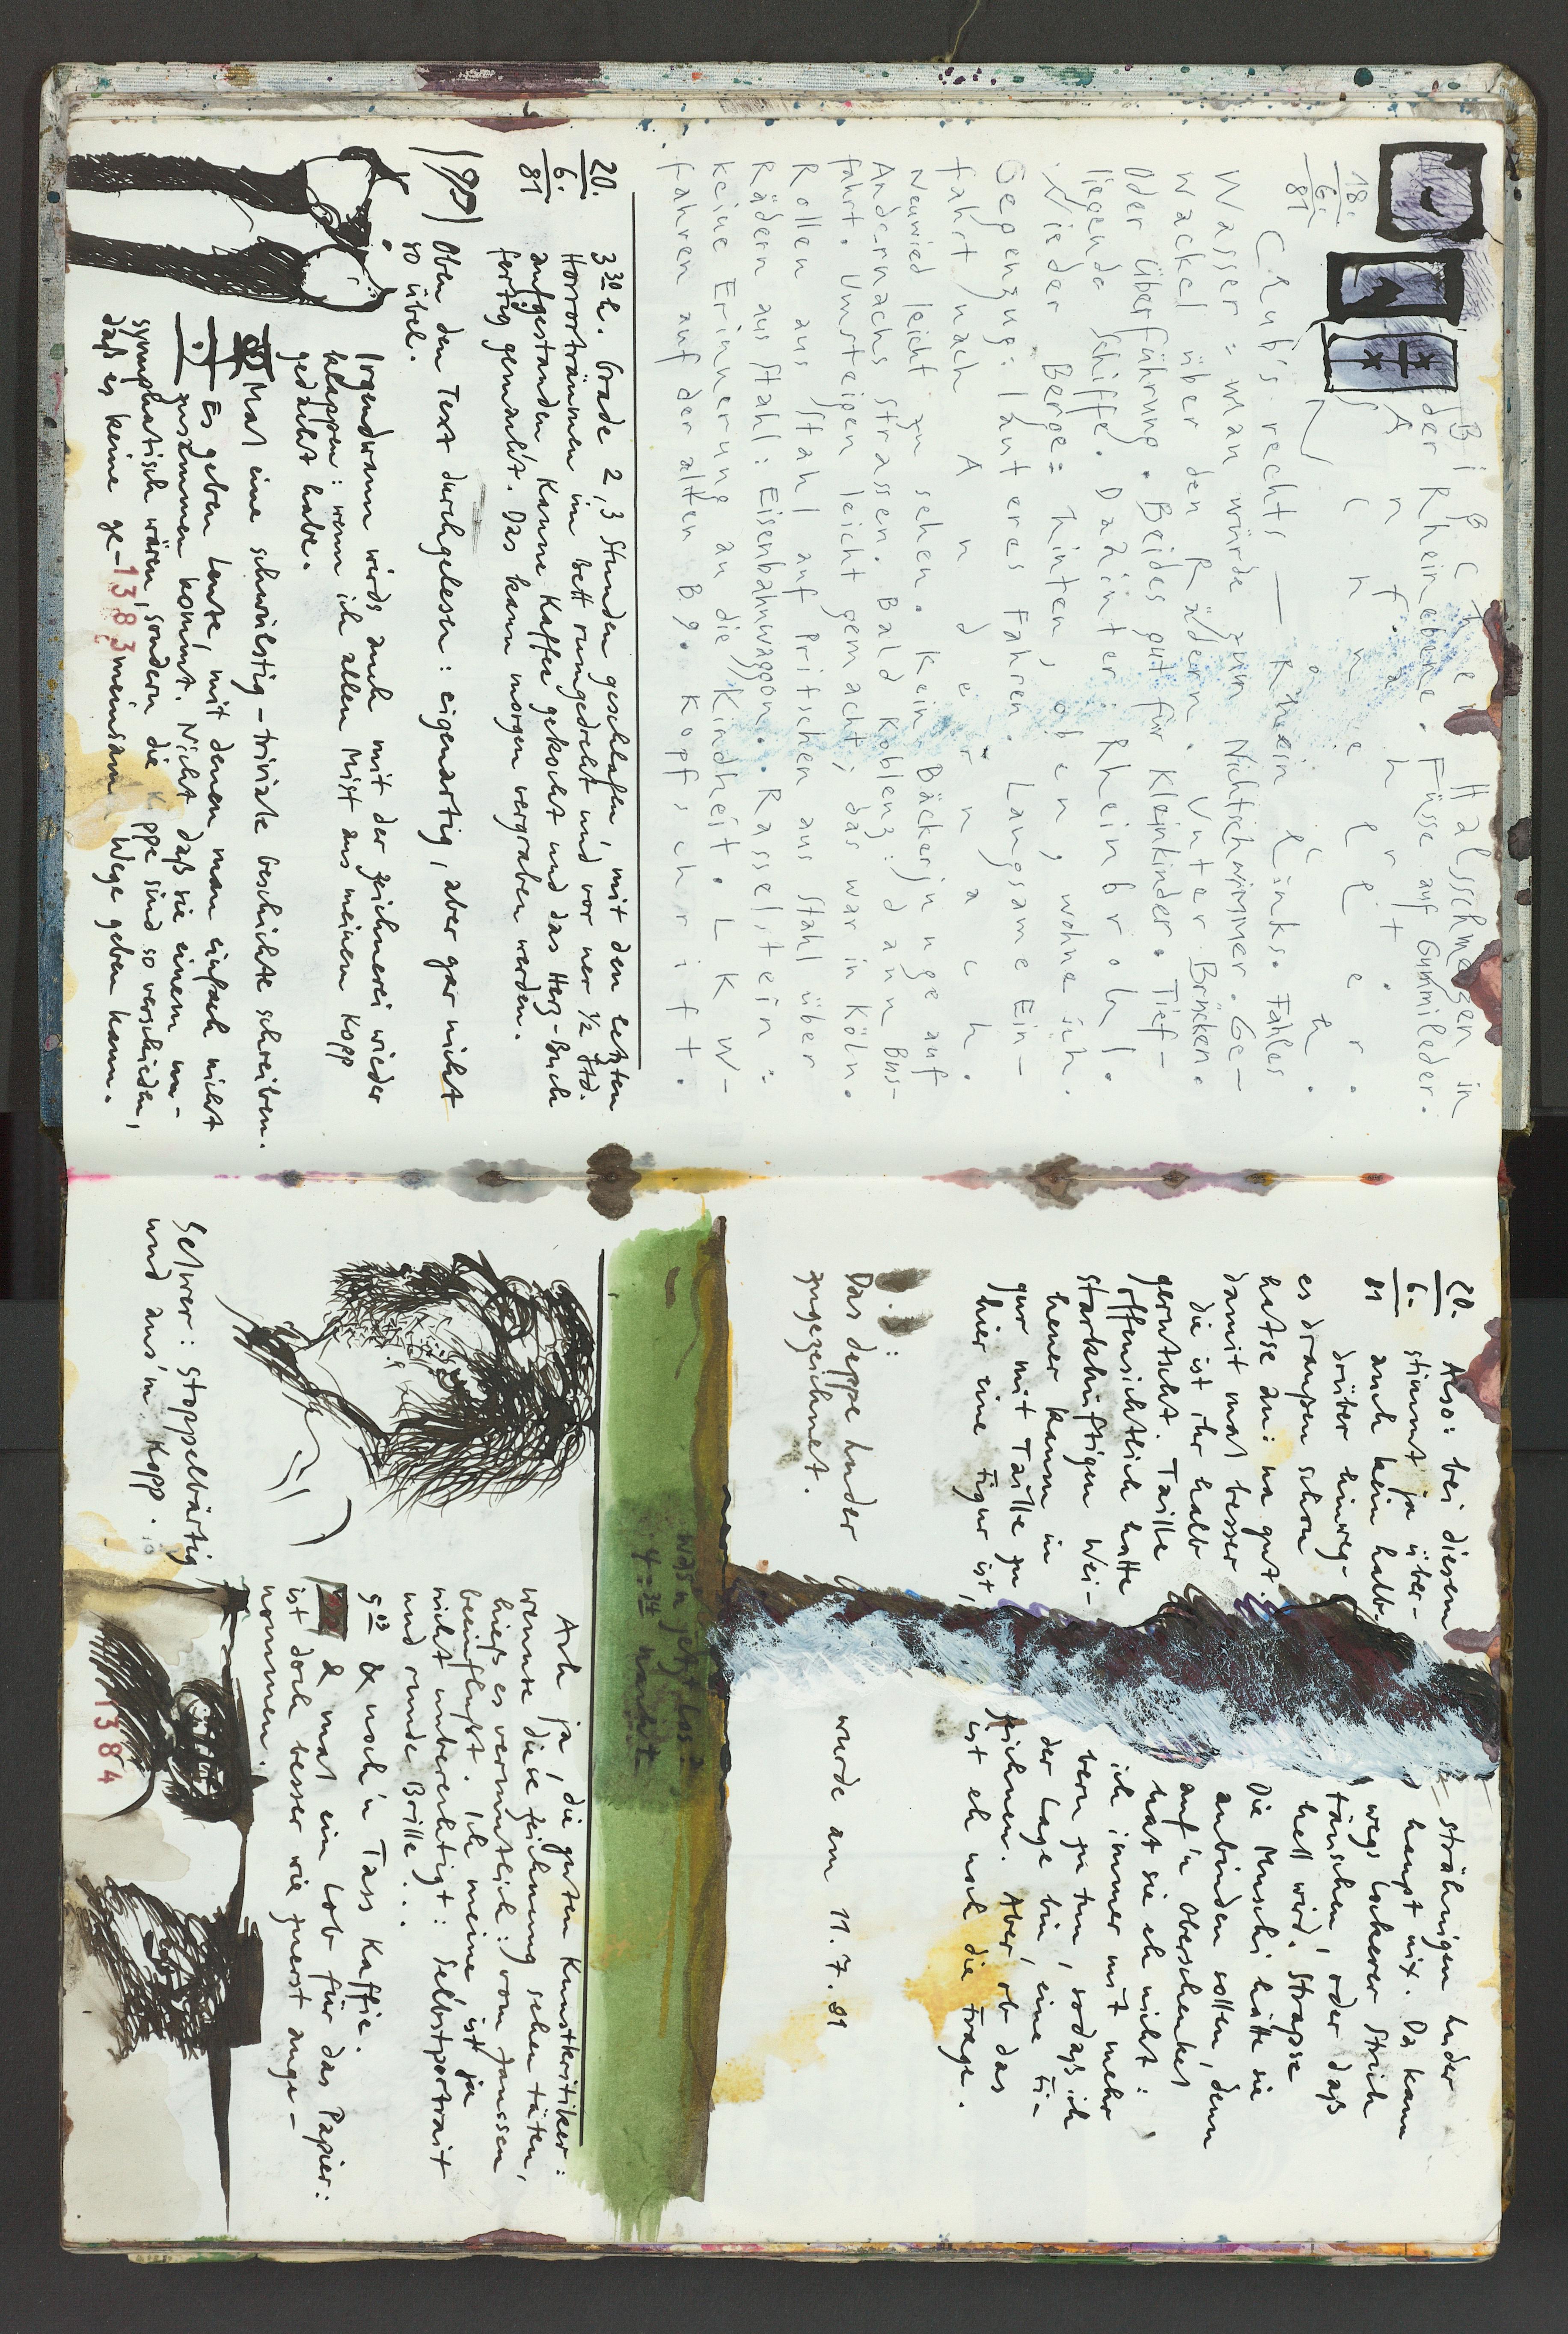 18.
6.
81
Bißchen Halsschmerzen in
der Rheinebene. Füsse auf Gummileder.
Anfahrt.
Schneller.
Club's rechts — Rhein links. Fahles
Wasser: man würde zum Nichtschwimmer. Ge-
wackel über den Rädern. Unter Brücken.
Oder Überführung. Beides gut für Kleinkinder. Tief-
liegende Schiffe. Dahinter: Rheinbrohl.
Wieder Berge: hinten, oben, wohne ich.
Gegenzug: lauteres Fahren. Langsame Ein-
fahrt nach Andernach.
Neuwied leicht zu sehen. Kein Bäckerjunge auf
Andernachs strassen. Bald Koblenz: dann Bus-
fahrt. Umsteigen leicht gemacht; das war in Köln.
Rollen aus Stahl auf Pritschen aus Stahl über
Rädern aus Stahl: Eisenbahnwaggon. Rasselstein:
keine Erinnerung an die Kindheit. LKW-
fahren auf der alten B9. Kopfschrift.
20.
6.
81
3 30 h. Grade 2, 3 Stunden geschlafen, mit den letzten
Horrorträumen im Bett rumgedreht und vor ner 1/2 Std.
aufgestanden. Kanne Kaffee gekocht und das Herz-Buch
fertig gemacht. Das kann morgen vergraben werden.
Oben den Text durchgelesen: eigenartig, aber gar nicht
so übel.
Irgendwann wirds auch mit der Zeichnerei wieder
klappen: wenn ich allen Mist aus meinem Kopp
gedacht habe.
Mal eine schwülstig-triviale Geschichte schreiben.
Es geben Leute, mit denen man einfach nicht
zusammen kommt. Nicht daß sie einem un-
sympathisch wären, sondern die Köppe sind so verschieden,
daß es keine ge-
meinsam Wege geben kann.
1383
20.
6.
81
Also: bei diesem strähnigen Luder
stimmt ja über-haupt nix. Da kann
auch kein halbwegs lockerer Strich
drüber hinweg-täuschen, oder daß
es draußen schon hell wird. Strapse
hatse an: na gut. Die Muschi hätte sie
damit mal besser anbinden sollen, denn
die ist ihr halb auf'n Oberschenkel
gerutscht. Taille hat sie eh nicht:
offensichtlich hatte ich immer mit mehr
starkhüftigen Wei-bern zu tun, sodaß ich
kaum in der Lage bin, eine Fi-
gur mit Taille zu zeichnen. Aber, ob das
hier eine Figur ist, ist eh noch die Frage.
Das deppe Luder wurde am 11.7.81
zugezeichnet.
Wasn jetzt los?
4 34
Ach ja, die guten Kunstkritiker:
wennse diese Zeichnung sehen täten,
hieß es vermutlich: vom Janssen
beeinflußt. Ich meine, ist ja
nicht unberechtigt: Selbstportrait
und runde Brille...
5 03 & noch'n Tass Kaffie.
& mal ein Lob für das Papier:
ist doch besser wie zuerst ange-
nommen.
Selver: stoppelbärtig
und aus'm Kopp.
1384